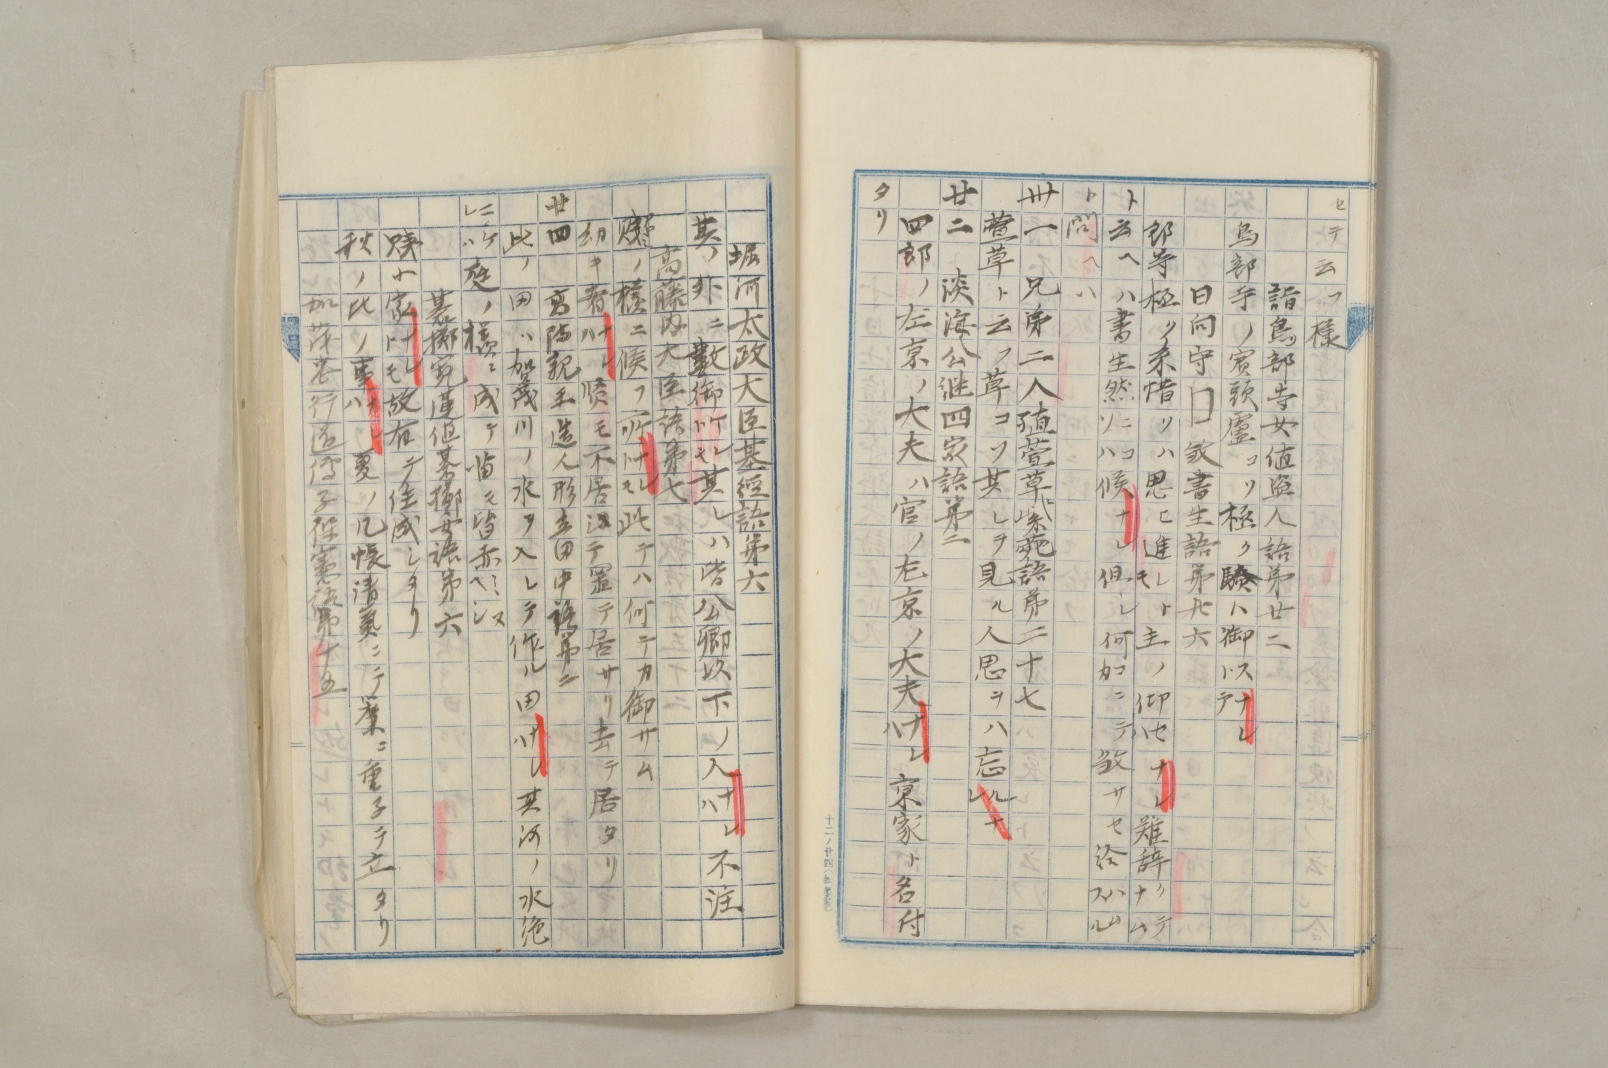 セテ云フ様
詣鳥部寺女値盗人語第廿二
鳥部寺ノ賓頭盧コソ極ク験ハ御スナレトテ
日向守□□敦書生語第卅六
郎等極ク糸惜クハ思ヒ進レトモ主ノ仰セナレハ難辞クテナム
ト云ヘハ書生然ニコソハ候ナレ但シ何カニテ敦サセ給ハムスル
ト問ヘハ
卅一 兄弟二人殖萱草紫苑語第二十七
萱草ト云フ草コソ其レヲ見ル人思ヲハ忘ルナレ
廿二 淡海公継四家語第二
四郎ノ左京ノ大夫ハ官ノ左京ノ大夫ナレハ京家ト名付
タリ
堀河太政大臣基経語第六
其ノ外ニ数御ケレトモ其レハ皆公卿以下ノ人ナレハ不注
高藤内大臣語第七
賤ノ様ニ候フ所ナレトモ此テハ何テカ御サム
幼キ者ナレハ贖モ不居シテ置テ居サリ去テ居タリ
廿四 高陽親王造人形立田中語第二
此ノ田ハ加茂川ノ水ヲ入レテ作ル田ナレハ其河ノ水絶
ニケレハ庭ノ様ニ成テ苗モ皆赤ヘミヌ
碁擲寛蓮値碁擲女語第六
賤小家ナレトモ故有テ住成シタリ
秋ノ比ノ事ナレハ夏ノ几帳清気ニテ簾ニ重子テ立タリ